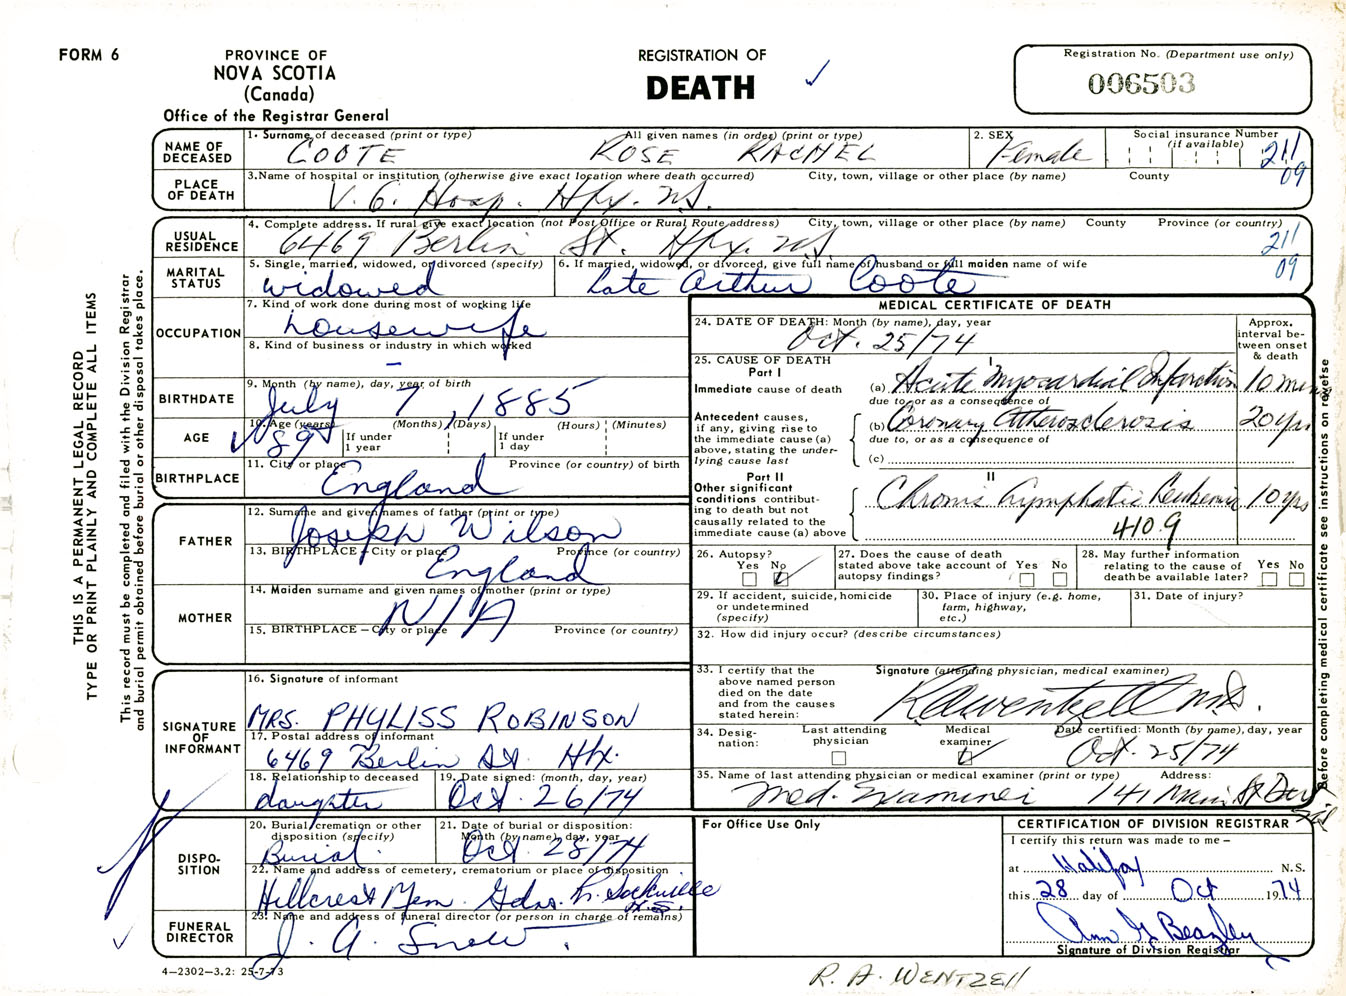 FORM 6
PROVINCE OF
NOVA SCOTIA
(Canada)
Office of the Registrar General
REGISTRATION OF
DEATH
Registration No. (Department use only)
006503
NAME OF DECEASED
1. Surname of deceased (print or type) All given names (in order) (print or type)
COOTE ROSE RACHEL
2. SEX
Female
Social insurance Number
(if available)
211
09
PLACE OF DEATH
3. Name of hospital or institution (otherwise give exact location where death occurred) City, town, village or other place (by name) County
V. G. Hosp. Hfx. N.S.
USUAL RESIDENCE
4. Complete address. If rural give exact location (not Post Office or Rural Route address) City, town, village or other place (by name) County Province (or country)
6469 Berlin St. Hfx. N.S.
211
09
MARITAL STATUS
5. Single, married, widowed, or divorced (specify)
widowed
6. If married, widowed, or divorced, give full name of husband or full maiden name of wife
Late Arthur Coote
OCCUPATION
7. Kind of work done during most of working life
housewife
8. Kind of business or industry in which worked
–
BIRTHDATE
9. Month (by name), day, year of birth
July 7, 1885
AGE
10. Age (years) (Months) (Days) (Hours) (Minutes)
89
If under 1 year
If under 1 day
BIRTHPLACE
11. City or place Province (or country) of birth
England
FATHER
12. Surname and given names of father (print or type)
Joseph Wilson
13. BIRTHPLACE – City or place Province (or country)
England
MOTHER
14. Maiden surname and given names of mother (print or type)
N/A
15. BIRTHPLACE – City or place Province (or country)
SIGNATURE OF INFORMANT
16. Signature of informant
MRS. PHYLISS ROBINSON
17. Postal address of informant
6469 Berlin St. Hfx.
18. Relationship to deceased
daughter
19. Date signed: (month, day, year)
Oct. 26/74
DISPOSITION
20. Burial, cremation or other disposition (specify)
Burial
21. Date of burial or disposition: Month (by name), day, year
Oct. 28/74
22. Name and address of cemetery, crematorium or place of disposition
Hillcrest Mem. Gdns. Sackville
N.S.
FUNERAL DIRECTOR
23. Name and address of funeral director (or person in charge of remains)
J. A. Snow.
4–2302–3.2: 25-7-73
MEDICAL CERTIFICATE OF DEATH
24. DATE OF DEATH: Month (by name), day, year
Oct. 25/74
Approx. interval between onset & death
25. CAUSE OF DEATH
Part I
I
Immediate cause of death
(a) Acute Myocardial Infarction 10 mins
due to, or as a consequence of
Antecedent causes, if any, giving rise to the immediate cause (a) above, stating the underlying cause last
(b) Coronary Atherosclerosis 20 yrs
due to, or as a consequence of
(c)
Part II
II
Other significant conditions contributing to death but not causally related to the immediate cause (a) above
Chronic Lymphatic Leukemia 10 yrs
410.9
26. Autopsy?
Yes No
27. Does the cause of death stated above take account of autopsy findings?
Yes No
28. May further information relating to the cause of death be available later?
Yes No
29. If accident, suicide, homicide or undetermined (specify)
30. Place of injury (e.g. home, farm, highway, etc.)
31. Date of injury?
32. How did injury occur? (describe circumstances)
33. I certify that the above named person died on the date and from the causes stated herein:
Signature (attending physician, medical examiner)
R A Wentzell M.D.
34. Designation:
Last attending physician
Medical examiner
Date certified: Month (by name), day, year
Oct. 25/74
35. Name of last attending physician or medical examiner (print or type) Address:
Med. Examiner 141 Main St
For Office Use Only
CERTIFICATION OF DIVISION REGISTRAR
I certify this return was made to me –
at Halifax N.S.
this 28 day of Oct 1974
Ann G Beazley
Signature of Division Registrar
R. A. WENTZELL
THIS IS A PERMANENT LEGAL RECORD
TYPE OR PRINT PLAINLY AND COMPLETE ALL ITEMS
This record must be completed and filed with the Division Registrar
and burial permit obtained before burial or other disposal takes place.
Before completing medical certificate see instructions on reverse